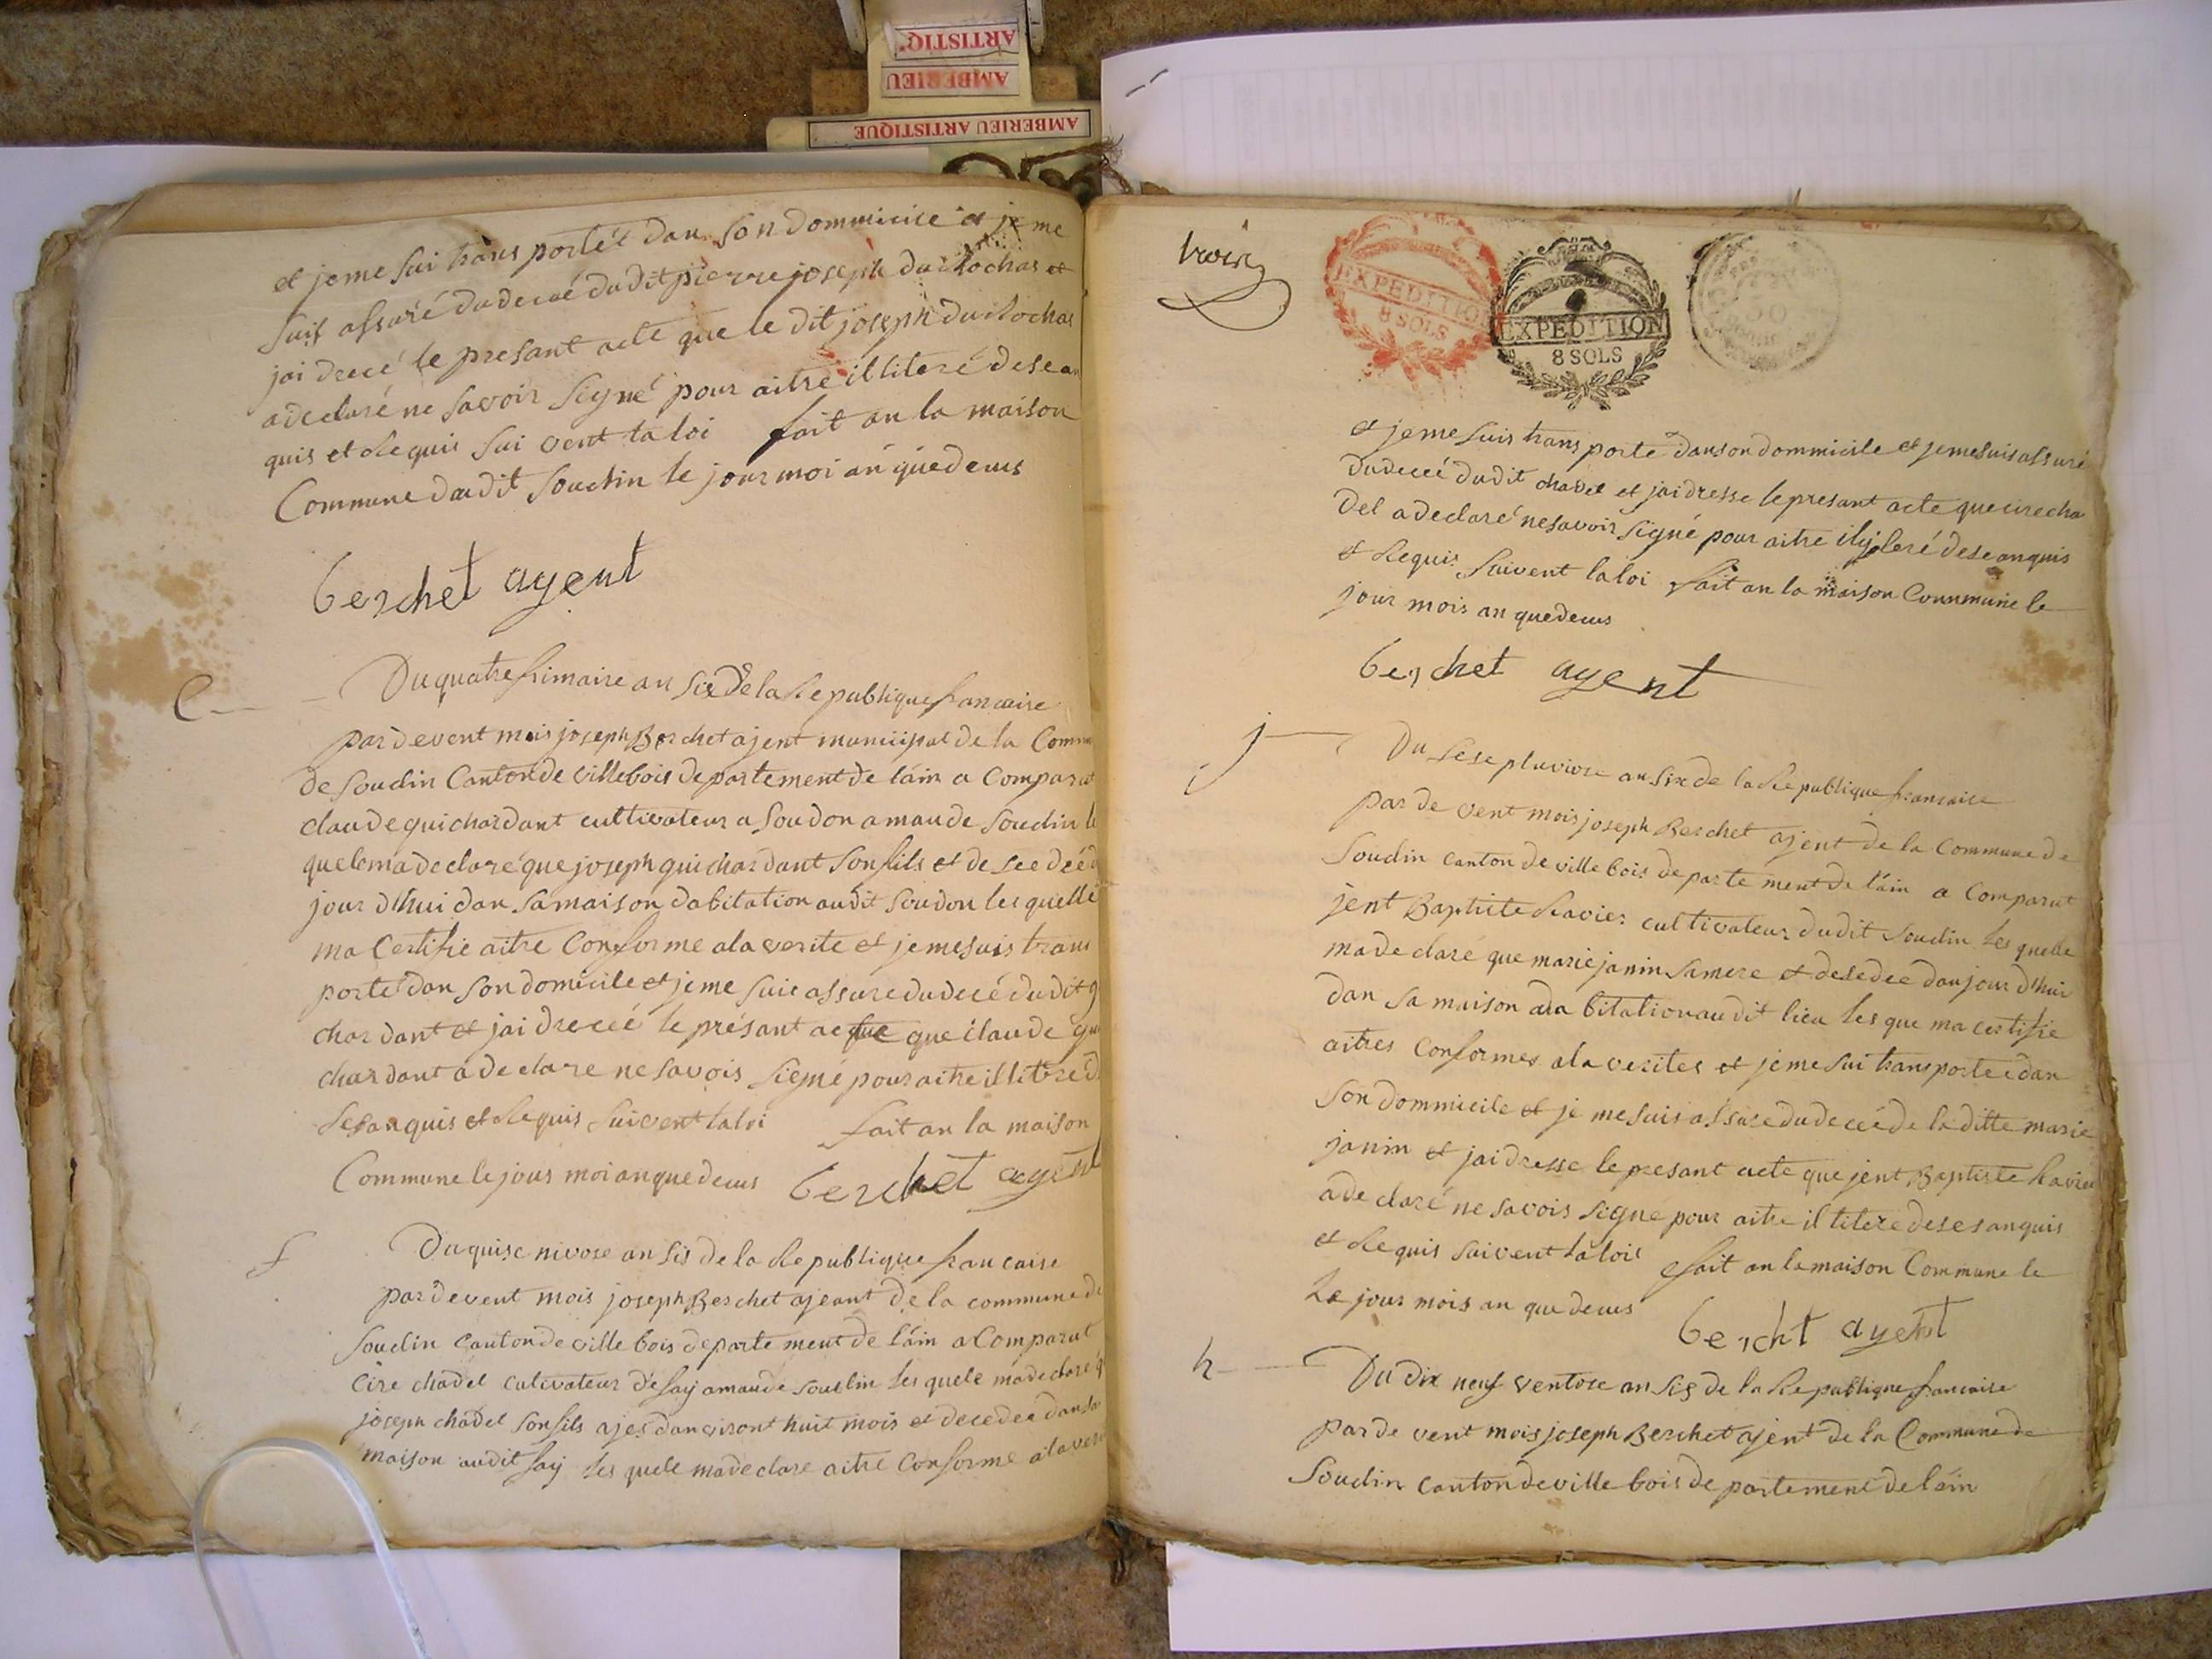 ARTISTIQ'
AMBERIEU
AMBERIEU ARTISTIQUE
et jeme sui trans portét dan son dommicile et je me
suis assuré du decué du dit pierre joseph duclochas et
jai drecé le presant acte que le dit joseph duclochas
a declaré ne savoir signé pour aitre illiteré de sean
quis et Requis sui vent la loi fait an la maison
Commune dudit Soudin le jour moi an que deus
berchet agent
e Du quatre frimaire an six de la Republique francaire
par devent mois joseph Berchet ajent municipal de la Comm
de Soudin Canton de villebois departement de láin a Comparut
claude quichardant cultivateur a Soudon amau de Soudin le
quelema declaré que joseph quichardant Son fils et de cee déé
jour d'hui dan Samaison dabitation audit Soudon les quelle
ma Certifie aitre Conforme ala verite et jemesuis trans
porté dan Son domicile et jeme suis assure du decé du dit g
chardant et jai dreceé le présant acque que claude qu
chardant a declare ne savois signé pour aitre illitéré d
Sesanquis et Requis suivent la loi fait an la maison
Commune le jous moi an que deus berchet agent
f Du quise nivose an sis de la Republique francaise
par devent mois joseph Berchet ajeant de la commune de
Soudin Canton de ville bois departe ment de láin a Comparut
Cire chadel cultivateur de faÿ amau de soudin les quele ma declaré q
joseph chadel son fils ajes dan viront huit mois et decedee dan sa
maison au dit faÿ les quele ma declare aitre Conforme a la veri
trois
EXPEDITION
8 SOLS
EXPEDITION
8 SOLS
et jeme suis trans porté dan son dommicile et jemesuis assuré
du deceé du dit chadel et jai dresse le presant acte que cire cha
del a declaré ne savoir signé pour aitre ilÿteré de seanquis
et Requis suivent la loi fait an la maison Commune le
jour mois an que deus
berchet agent
j Du sese pluviose an six de la Republique francaise
par de vent mois joseph Berchet ajent de la Commune de
Soudin canton de ville bois departe ment de láin a Comparut
jent Baptiste Ravier cultivateur du dit Soudin les quelle
ma de claré que marie janin Sa mere et desedee dau jour d'hui
dan sa maison da bitation au dit lieu les que ma certifie
aitres Conformes ala verites et jeme sui transporteé dan
Son dommicile et je me suis assure du deceé de la ditte marie
janin et jai dresse le presant acte que jent Baptiste Ravier
a de claré ne savois signe pour aitre il litere de sesanquis
et Requis suivent la lois fait an la maison Commune le
Le jour mois an que deus bercht agent
h Du dix neuf ventose an sis de la Republique francaise
par de vent mois joseph Berchet ajent de la Commune de
Soudin canton de ville bois de partement de láin